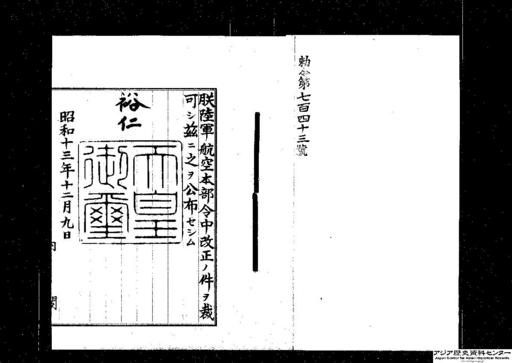 勅令第七百四十三號
朕陸軍航空本部令中改正ノ件ヲ裁
可シ茲ニ之ヲ公布セシム
裕仁
天皇
御璽
昭和十三年十二月九日
内閣
アジア歴史資料センター
Japan Center for Asian Historical Records